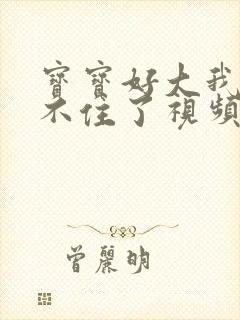 寶寶好大我
不住了視頻
曾麗明